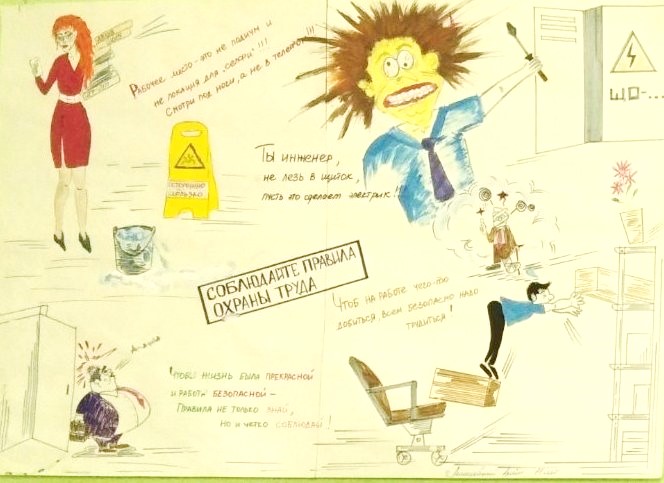 Рабочее место - это не подиум и
не локация для "селфи"!!!
Смотри под ноги, а не в телефон!!!
ОСТОРОЖНО
СКОЛЬЗКО
Ты инженер,
не лезь в щиток,
пусть это сделает электрик!!!
ЩО-...
СОБЛЮДАЙТЕ ПРАВИЛА
ОХРАНЫ ТРУДА
Чтоб на работе чего-то
добиться, всем безопасно надо
трудиться!
Чтобы жизнь была прекрасной
и работа безопасной -
Правила не только знай,
но и четко соблюдай!